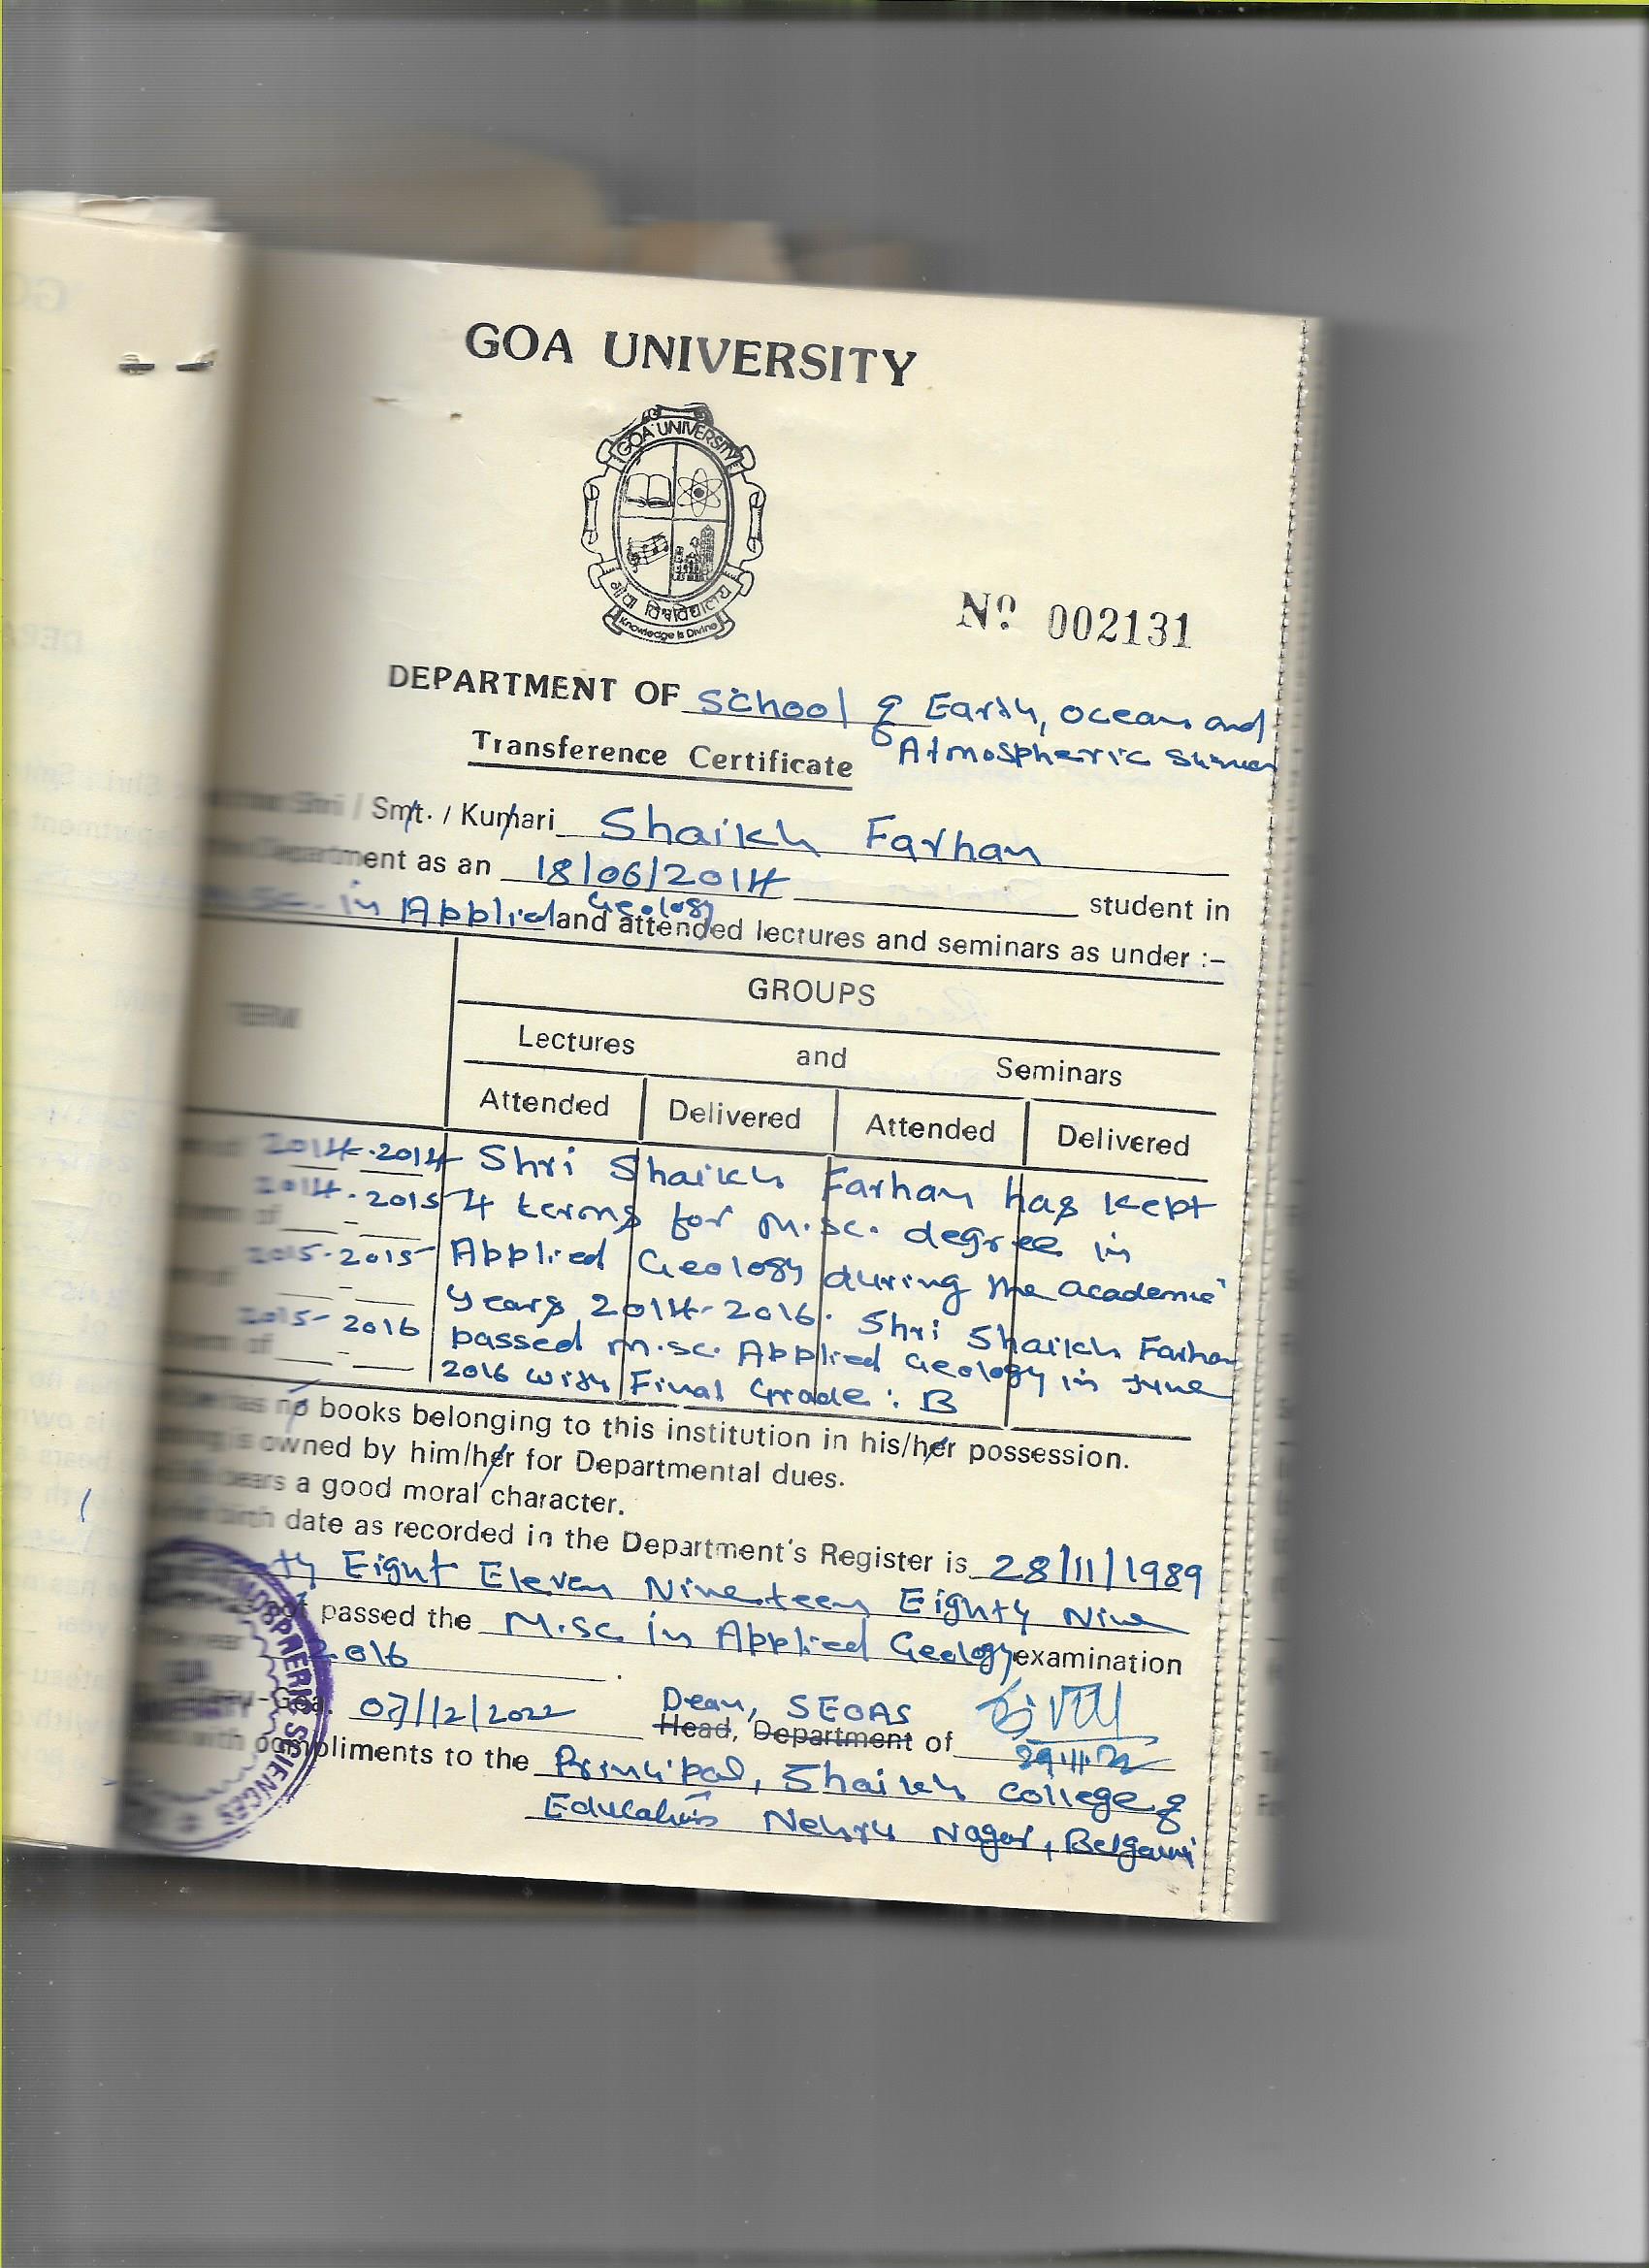 GOA UNIVERSITY
GOA UNIVERSITY
गोंय विश्वविद्यालय
Knowledge is Divine
Nº 002131
DEPARTMENT OF School of Earth, Ocean and
Atmospheric Sciences
Transference Certificate
Shri / Smt. / Kumari Shaikh Farhan
Department as an 18/06/2014 student in
M.Sc. in Applied Geology and attended lectures and seminars as under :-
TERM
GROUPS
Lectures and Seminars
Attended Delivered Attended Delivered
2014-2014 Shri Shaikh Farhan has kept
2014-2015 4 terms for M.Sc. degree in
2015-2015 Applied Geology during the academic
years 2014-2016. Shri Shaikh Farhan
2015-2016 passed M.Sc. Applied Geology in June
2016 with Final Grade : B
has no books belonging to this institution in his/her possession.
is owned by him/her for Departmental dues.
bears a good moral character.
birth date as recorded in the Department's Register is 28/11/1989
ty Eight Eleven Nineteen Eighty Nine
passed the M.Sc in Applied Geology examination
year 2016
Goa. 07/12/2022 Dean, SEOAS
Head, Department of
29/11/22
with compliments to the Principal, Shaikh College of
Education Nehru Nagar, Belgaum
ATMOSPHERIC SCIENCES